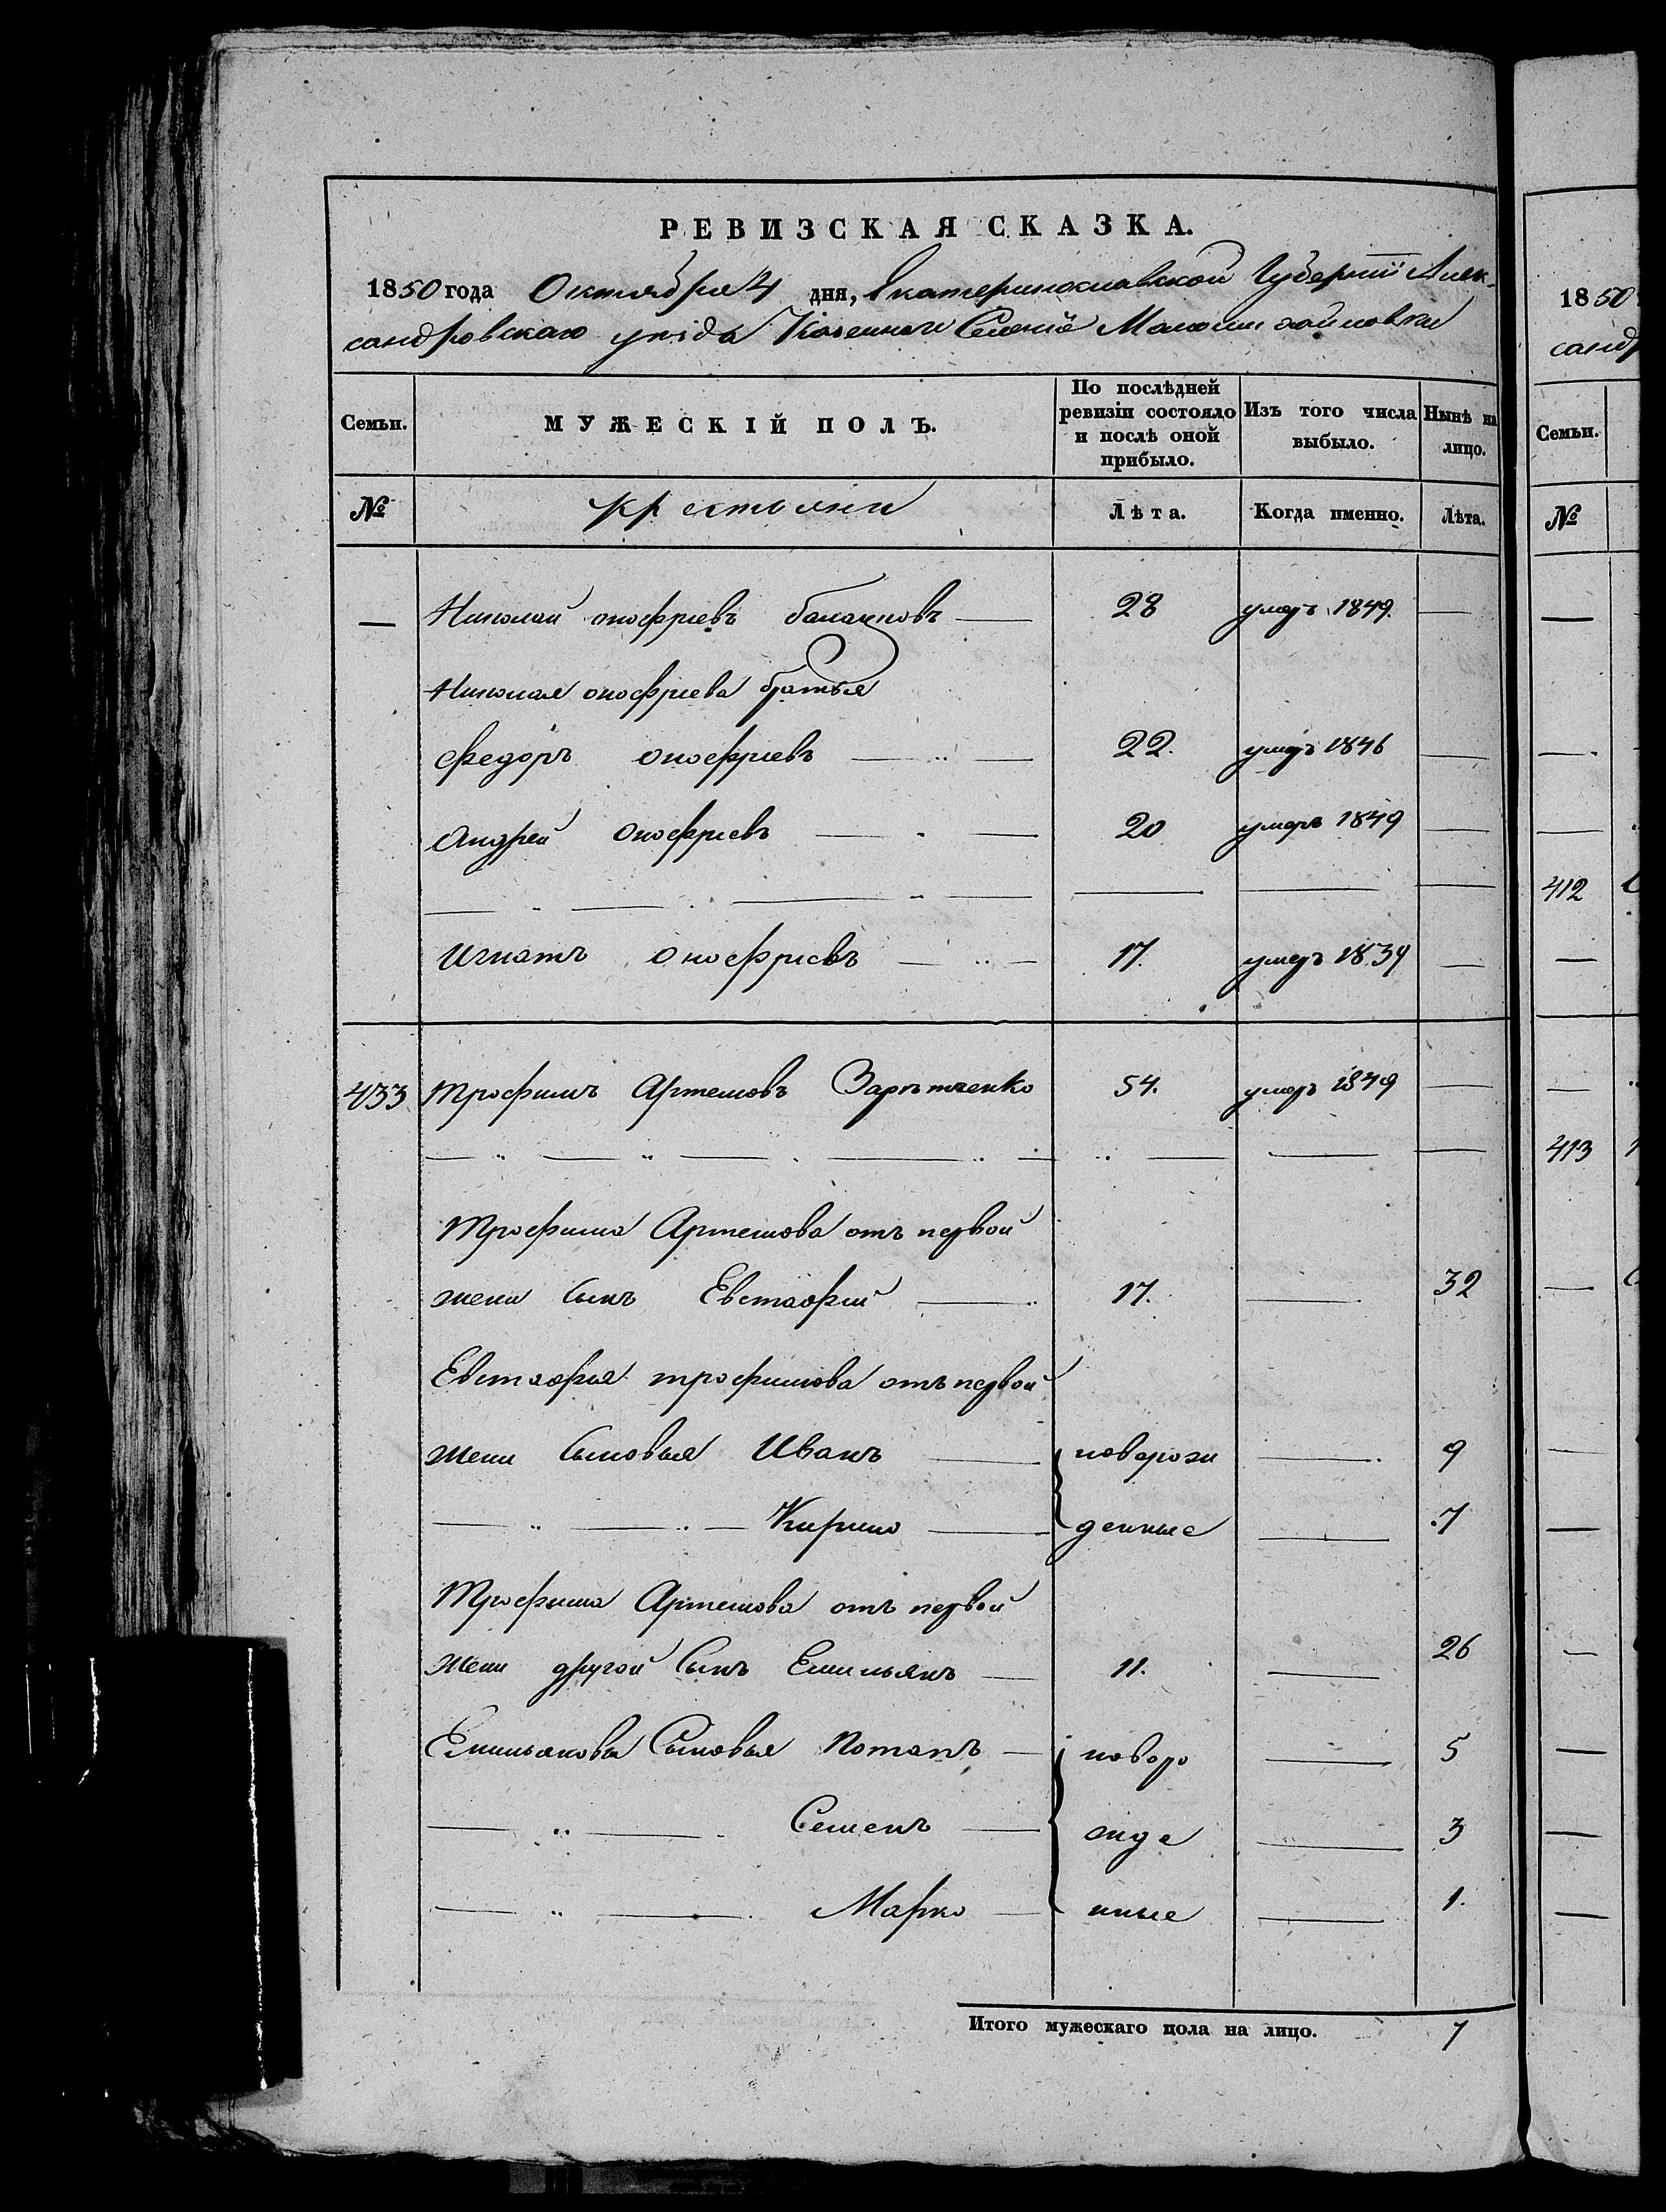 РЕВИЗСКАЯ СКАЗКА.
1850 года Октября 4 дня, Екатеринославской Губернiи Алек-
сандровскаго уѣзда Казенного Селенiя Маломихайловки
Семьи. МУЖЕСКІЙ ПОЛЪ. По послѣдней ревизіи состояло и послѣ оной прибыло. Изъ того числа выбыло. Нынѣ на лицо.
№ крестьяни Лѣта. Когда именно. Лѣта.
— Николай онофріевъ — 28 умеръ 1849. —
Николая онофріева братья
Федоръ онофріевъ — 22. умеръ 1846 —
Андрей Онофріевъ — 20 умеръ 1849 —
Игнатъ Онофріевъ — 17. умеръ 1839 —
433 Трофимъ Артемовъ 54. умеръ 1849 —
Трофима Артемова отъ первой
жени Сынъ Евстафій — 17. — 32
Евстафія трофимова отъ первой
жени Сыновья Иванъ — наворож — 9
Кирило — денные — 7
Трофима Артемова отъ первой
жени другой Сынъ Емильянъ — 11. — 26
Емильянова Сыновья Потапъ — новоро — 5
Семенъ — жде — 3
Марко — нные — 1.
Итого мужескаго пола на лицо. 7
1850
санд
Семьи.
№
412
413